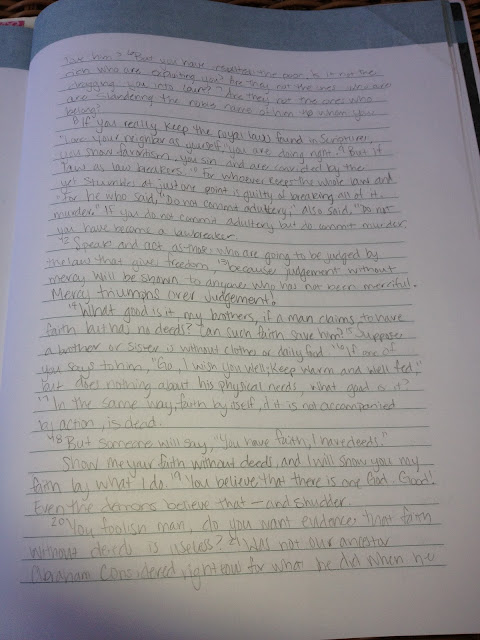 love him? ⁶But you have insulted the poor. Is it not the
rich who are exploiting you? Are they not the ones who are
dragging you into court? ⁷Are they not the ones who
are slandering the noble name of him to whom you
belong?
⁸If you really keep the royal law found in Scripture,
"Love your neighbor as yourself," you are doing right. ⁹But if
you show favoritism, you sin and are convicted by the
law as law breakers. ¹⁰For whoever keeps the whole law and
yet stumbles at just one point is guilty of breaking all of it.
¹¹For he who said, "Do not commit adultery," also said, "Do not
murder." If you do not commit adultery but do commit murder
you have become a lawbreaker
¹²Speak and act as those who are going to be judged by
the law that gives freedom, ¹³because judgement without
mercy will be shown to anyone who has not been merciful.
Mercy triumphs over judgement!
¹⁴What good is it my brothers, if a man claims to have
faith but has no deeds? Can such faith save him? ¹⁵Suppose
a brother or sister is without clothes or daily food. ¹⁶If one of
you says to him, "Go, I wish you well; keep warm and well fed,"
but does nothing about his physical needs, what good is it?
¹⁷In the same way, faith by itself, if it is not accompanied
by action, is dead.
¹⁸But someone will say, "You have faith, I have deeds."
Show me your faith without deeds, and I will show you my
faith by what I do. ¹⁹You believe that there is one God. Good!
Even the demons believe that — and shudder.
²⁰You foolish man, do you want evidence that faith
without deeds is useless? ²¹Was not our ancestor
Abraham considered righteous for what he did when he